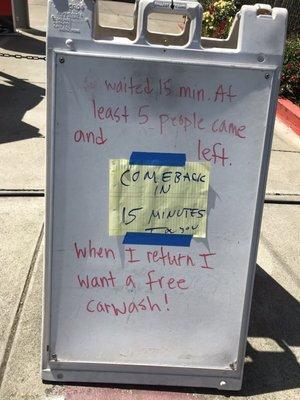 I waited 15 min. At
least 5 people came
and left.
COMEBACK
IN
15 MINUTES
When I return I
want a free
carwash!